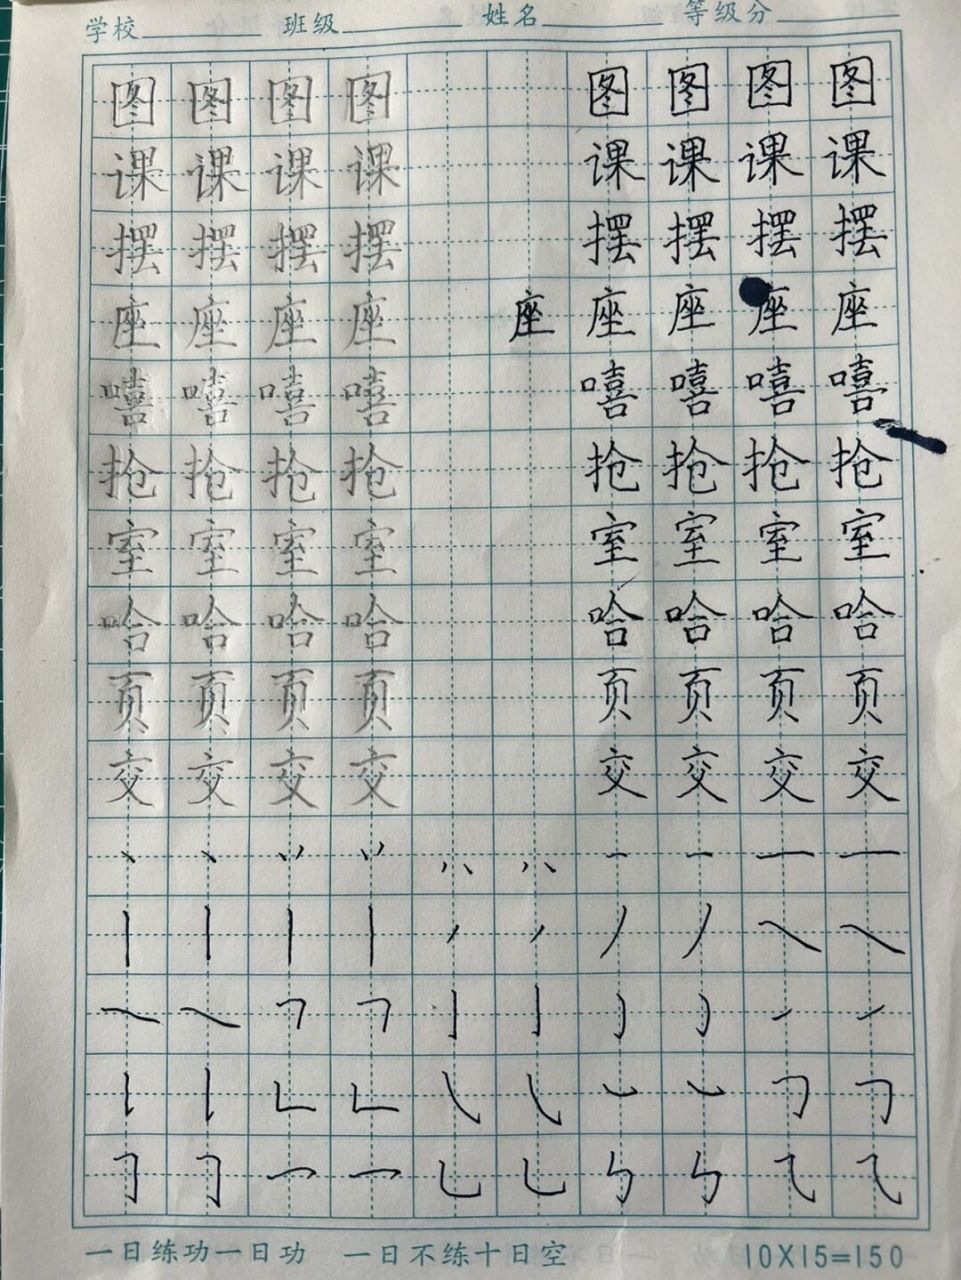 学校 班级 姓名 等级分
图图图图 图图图图
课课课课 课课课课
摆摆摆摆 摆摆摆摆
座座座座 座座座座座
嘻嘻嘻嘻 嘻嘻嘻嘻
抢抢抢抢 抢抢抢抢
室室室室 室室室室
哈哈哈哈 哈哈哈哈
页页页页 页页页页
交交交交 交交交交
一日练功一日功 一日不练十日空 10X15=150